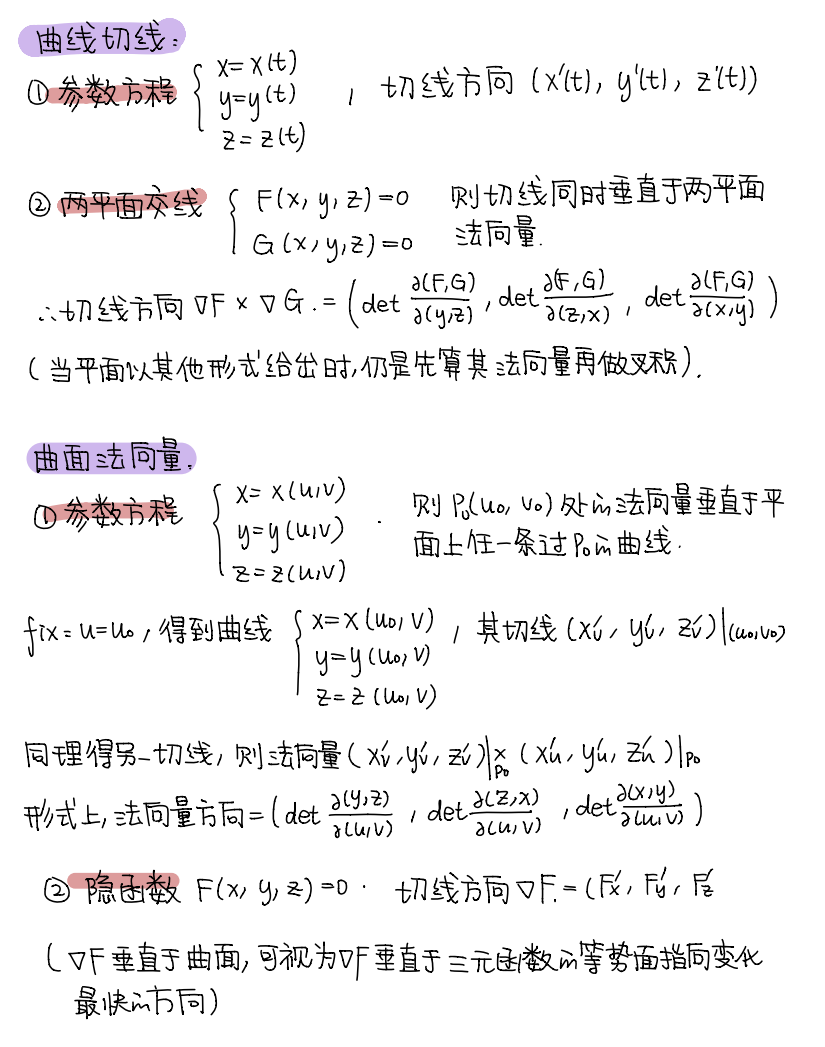 曲线切线：
① 参数方程 { x=x(t) y=y(t) z=z(t) ， 切线方向 (x'(t), y'(t), z'(t))
② 两平面交线 { F(x,y,z)=0 G(x,y,z)=0 则切线同时垂直于两平面
法向量.
∴切线方向 ∇F × ∇G.=(det ∂(F,G)/∂(y,z), det ∂(F,G)/∂(z,x), det ∂(F,G)/∂(x,y))
(当平面以其他形式给出时,仍是先算其法向量再做叉积).
曲面法向量.
① 参数方程 { x=x(u,v) y=y(u,v) z=z(u,v) . 则P₀(u₀,v₀)处的法向量垂直于平
面上任一条过P₀的曲线.
fix=u=u₀,得到曲线 { x=x(u₀,v) y=y(u₀,v) z=z(u₀,v) , 其切线(x'v, y'v, z'v)|(u₀,v₀)
同理得另一切线, 则法向量(x'v, y'v, z'v)|P₀ × (x'u, y'u, z'u)|P₀
形式上,法向量方向=(det ∂(y,z)/∂(u,v), det ∂(z,x)/∂(u,v), det ∂(x,y)/∂(u,v))
② 隐函数 F(x,y,z)=0. 切线方向∇F.=(F'x, F'y, F'z
(∇F垂直于曲面,可视为∇F垂直于三元函数的等势面指向变化
最快的方向)